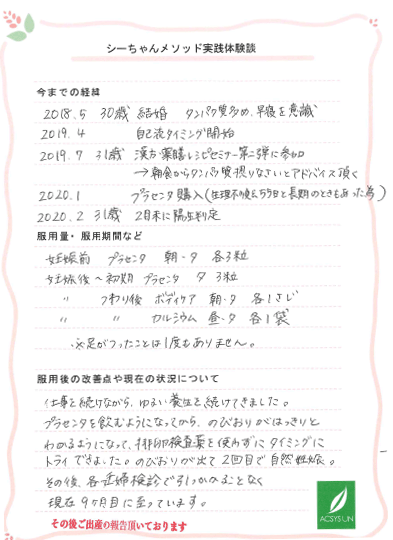 シーちゃんメソッド実践体験談
今までの経緯
2018.5 30歳 結婚 タンパク質多め、早寝を意識
2019.4 自己流タイミング開始
2019.7 31歳 漢方・薬膳レシピセミナー第二弾に参加
→朝食からタンパク質摂りなさいとアドバイス頂く
2020.1 プラセンタ購入(生理不順、55日と長期のときもあった為)
2020.2 31歳 2月末に陽性判定
服用量・服用期間など
妊娠前 プラセンタ 朝・夕 各3粒
妊娠後〜初期 プラセンタ 夕 3粒
〃 つわり後 ボディケア 朝・夕 各1さじ
〃 〃 カルシウム 昼・夕 各1袋
※足がつったことは1度もありません。
服用後の改善点や現在の状況について
仕事を続けながら、ゆるい養生を続けてきました。
プラセンタを飲むようになってから、のびおりがはっきりと
わかるようになって、排卵検査薬を使わずにタイミングに
トライできました。のびおりが出て2回目で自然妊娠。
その後、各妊婦検診で引っかかることなく
現在9ヶ月目に至っています。
その後ご出産の報告頂いております
ACSYSUN